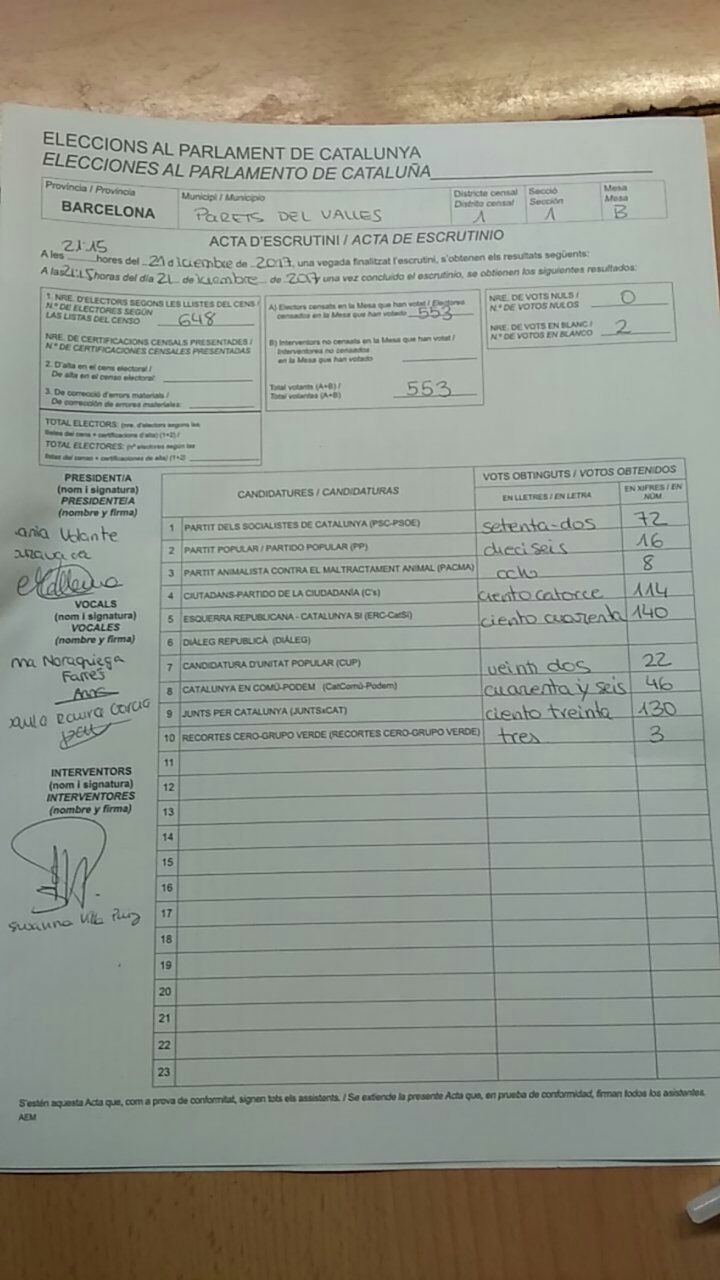 ELECCIONS AL PARLAMENT DE CATALUNYA
ELECCIONES AL PARLAMENTO DE CATALUÑA
Provincia / Provincia
BARCELONA
Municipi / Municipio
PARETS DEL VALLES
Districte censal
Distrito censal
1
Secció
Sección
1
Mesa
Mesa
B
ACTA D'ESCRUTINI / ACTA DE ESCRUTINIO
A les 21:15 hores del 21 diciembre de 2017, una vegada finalitzat l'escrutini, s'obtenen els resultats següents:
A las 21:15 horas del día 21 de diciembre de 2017 una vez concluido el escrutinio, se obtienen los siguientes resultados:
1. NRE. D'ELECTORS SEGONS LES LLISTES DEL CENS /
N.º DE ELECTORES SEGÚN
LAS LISTAS DEL CENSO 648
NRE. DE CERTIFICACIONS CENSALS PRESENTADES /
N.º DE CERTIFICACIONES CENSALES PRESENTADAS
2. D'alta en el cens electoral /
De alta en el censo electoral:
3. De correcció d'errors materials /
De corrección de errores materiales:
TOTAL ELECTORS: (nre. d'electors segons les
llistes del cens + certificacions d'alta) (1+2) /
TOTAL ELECTORES: (nº electores según las
listas del censo + certificaciones de alta) (1+2)
A) Electors censats en la Mesa que han votat / Electores
censados en la Mesa que han votado 553
B) Interventors no censats en la Mesa que han votat /
Interventores no censados
en la Mesa que han votado
Total votants (A+B) /
Total votantes (A+B) 553
NRE. DE VOTS NULS /
N.º DE VOTOS NULOS 0
NRE. DE VOTS EN BLANC /
N.º DE VOTOS EN BLANCO 2
PRESIDENT/A
(nom i signatura)
PRESIDENTE/A
(nombre y firma)
Volante
VOCALS
(nom i signatura)
VOCALES
(nombre y firma)
Noraguega
Farres
INTERVENTORS
(nom i signatura)
INTERVENTORES
(nombre y firma)
Susanna Villa Puig
CANDIDATURES / CANDIDATURAS
VOTS OBTINGUTS / VOTOS OBTENIDOS
EN LLETRES / EN LETRA
EN XIFRES / EN NÚM.
1 PARTIT DELS SOCIALISTES DE CATALUNYA (PSC-PSOE) setenta-dos 72
2 PARTIT POPULAR / PARTIDO POPULAR (PP) dieciseis 16
3 PARTIT ANIMALISTA CONTRA EL MALTRACTAMENT ANIMAL (PACMA) ocho 8
4 CIUTADANS-PARTIDO DE LA CIUDADANÍA (C's) ciento catorce 114
5 ESQUERRA REPUBLICANA - CATALUNYA SI (ERC-CatSí) ciento cuarenta 140
6 DIÀLEG REPUBLICÀ (DIÀLEG)
7 CANDIDATURA D'UNITAT POPULAR (CUP) veinti dos 22
8 CATALUNYA EN COMÚ-PODEM (CatComú-Podem) cuarenta y seis 46
9 JUNTS PER CATALUNYA (JUNTSxCAT) ciento treinta 130
10 RECORTES CERO-GRUPO VERDE (RECORTES CERO-GRUPO VERDE) tres 3
11
12
13
14
15
16
17
18
19
20
21
22
23
S'estén aquesta Acta que, com a prova de conformitat, signen tots els assistents. / Se extiende la presente Acta que, en prueba de conformidad, firman todos los asistentes.
AEM